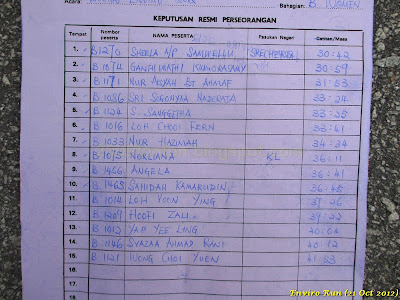 Bahagian: B WOMEN
KEPUTUSAN RESMI PERSEORANGAN
Tempat Nombor peserta NAMA PESERTA Pasukan/Negeri Catitan/Masa
1. B1270 SHEELA A/P SAMIVELLU SKECHERS 30:42
2. B1074 GANTHIMATHI 30:59
3. B1171 NUR AISYAH BT AHMAF 31:53
4. B1086 SRI 33:24
5. B1124 S. SANGEETHA 33:25
6. B1016 LOH CHOOI FERN 33:41
7. B1033 NUR HAZIMAH 34:34
8. B1075 NORLIANA KL 36:11
9. B1466 ANGELA 36:41
10. B1465 SAHIDAH KAMARUDIN 36:45
11. B1014 LOH YOON YING 37:26
12. B1209 HOOFI ZALI 39:22
13. B1012 YAP YEE LING
14. B1146 SYAZAA AHMAD RANI 40:12
15. B1121 WONG CHOI YUEN 41:53
16.
17.
18.
Enviro Run (21 Oct 2012)